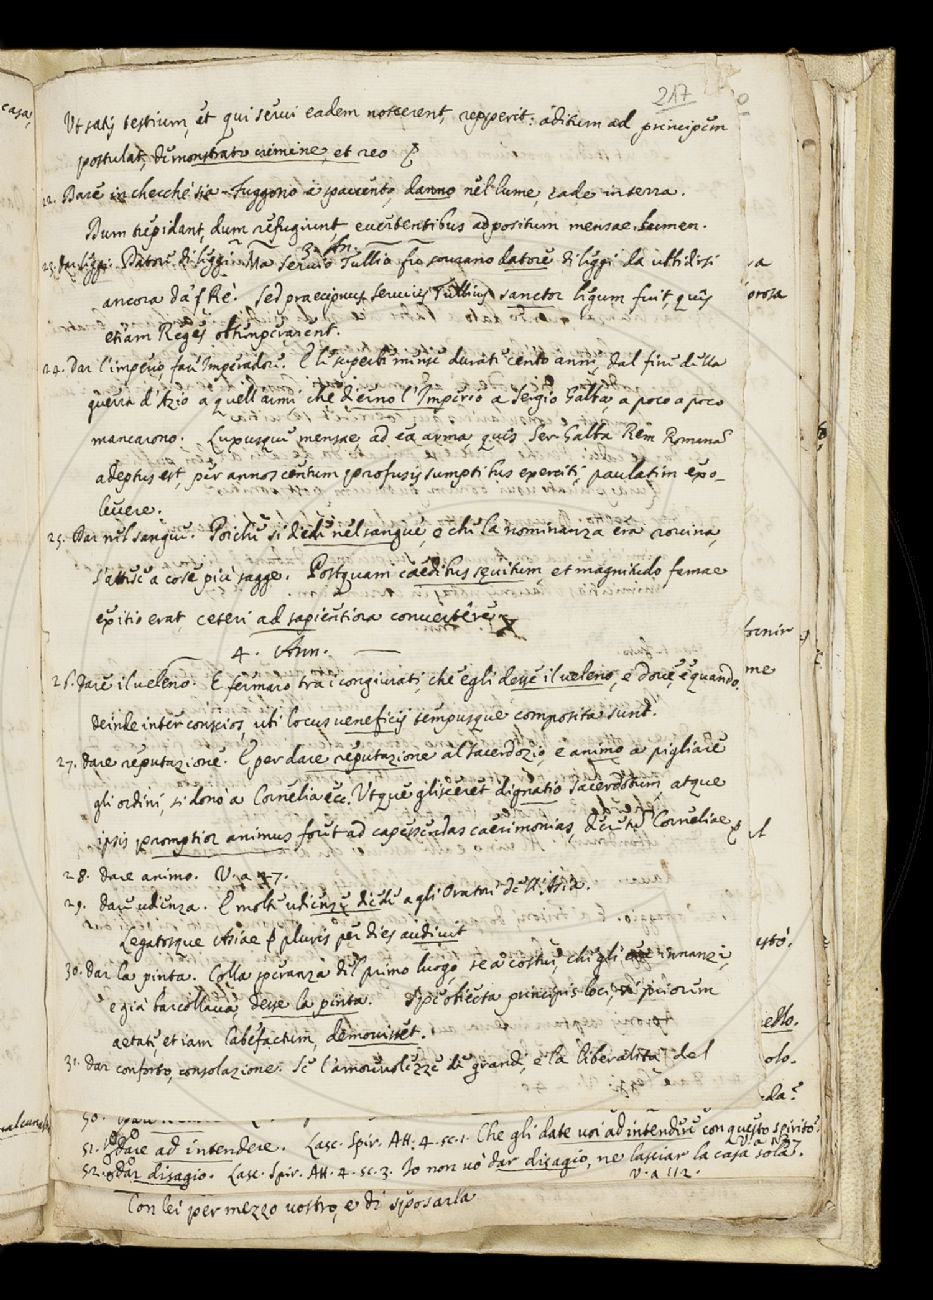 217
casa,
Ut satis testium, et qui servi eadem noscerent, repperit: aditum ad principem
postulat, demonstrato crimine, et reo
22. Dare in checché sia. Fuggono e spavento, danno nel lume, cade in terra.
Dum trepidant, dum refugiunt evertentibus adpositum mensae lumen.
3. Ann.
23. Dar liggi. Datore di liggi. Ma Servio Tullio fu sovrano datore di liggi da ubbidirsi
ancora da i Re. Sed praecipuus Servius Tullius sanctor legum fuit, quis
etiam Reges obtemperarent.
24. Dar l'imperio, fare Imperadore. E le superbe mense durate cento anni dal fine della
guerra d'Azio a quell'armi che dierno l'Imperio a Sergio Galba, a poco a poco
mancarono. Luxusque mensae, ad ea arma, quis Ser. Galba Rem Romanã
adeptus est, per annos centum profusis sumptibus exerciti, paulatim exo-
levere.
25. Dar nel sangue. Poiché si diede nel sangue, e che la nominanza era rovina,
s'attese a cose più sagge. Postquam caedibus sevitum, et magnitudo famae
exitio erat, ceteri ad sapientiora convertere
4. Ann.
26. Dare il veleno. E fermaro tra i congiurati, che egli desse il veleno, e dove, e quando.
deinde inter conscios, uti locus veneficij tempusque composita sunt.
27. Dare reputazione. E per dare reputazione al sacerdozio, e animo a pigliare
gli ordini, si donò a Cornelia ecc. Utque glisceret dignatio Sacerdotum, atque
ipsis promptior animus foret ad capessendas caerimonias, decretũ Corneliae
28. Dare animo. V. a 27.
29. Dare udienza. E molte udienze diede agli Oratori dell'Asia.
Legatosque Asiae p pluris per dies audivit
30. Dar la pinta. Colla speranza del primo luogo, se a costui, che gli era innanzi,
e già barcollava, desse la pinta. Spe obiecta principis loci, si priorem
aetate, et iam labefactum, demovisset.
31. Dar conforto, consolazione. Se l'amorevolezze de grandi, e la liberalità del
51. Dare ad intendere. Lasc. Spir. Att. 4. sc. 1. Che gli date voi ad intendere con questo spirito.
V. a 127
52. Dar disagio. Lasc. Spir. Att. 4. sc. 3. Io non vò dar disagio, ne lasciar la casa sola.
V. a 112.
Con lei per mezzo vostro, e di sposarla